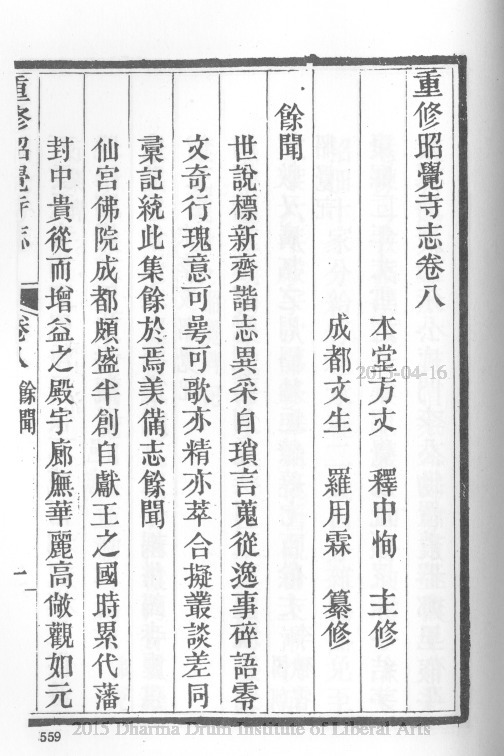 重修昭覺寺志卷八
本堂方丈 釋中恂 主修
成都文生 羅用霖 纂修
餘聞
世說標新齊諧志異采自瑣言蒐從逸事碎語零
文奇行瑰意可咢可歌亦精亦萃合擬叢談差同
彙記統此集餘於焉美備志餘聞
仙宮佛院成都頗盛半創自獻王之國時累代藩
封中貴從而增益之殿宇廊廡華麗高敞觀如元
重修昭覺寺志 卷八 餘聞 一
559
2015-04-16
2015 Dharma Drum Institute of Liberal Arts